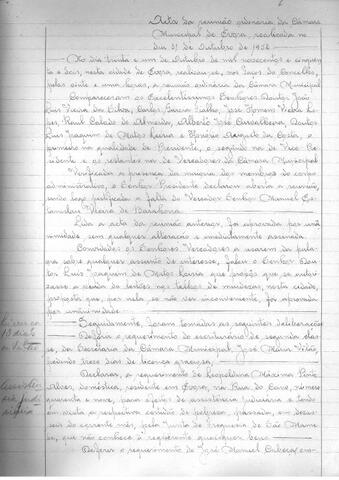 Acta da reunião ordinaria da Câmara
Municipal de Evora realizada no
dia 31 de Outubro de 1952
No dia trinta e um de Outubro de mil novecentos e cinquenta
e dois, nesta cidade de Evora, realizou-se, nos Paços do Concelho,
pelas vinte e uma horas, a reunião ordinária da Câmara Municipal
Compareceram os Excelentissimos Senhores Doutor João
Luis Vieira da Silva, Carlos Fialho, José Homem Vieira
Lopes, Raul Calado de Almeida, Alberto José Carvalheira, Doutor
Luis Joaquim de Matos e Honório Augusto da Costa, o
primeiro na qualidade de Presidente, o segundo na de Vice Presidente
e os restantes na de Vereadores da Câmara Municipal
Verificada a presença da maioria dos membros do corpo
administrativo, o Senhor Presidente declarou aberta a reunião,
tendo sido justificada a falta do Vereador Senhor Manuel
Vieira de Barahona
Lida a acta da reunião anterior, foi aprovada por unanimidade
sem qualquer alteração e devidamente assinada
Convidados os Senhores Vereadores a usarem da palavra
sobre qualquer assunto de interesse, falou o Senhor Doutor
Luis Joaquim de Matos que propôs que se autorizasse
a venda de nesta cidade,
proposta que, por nela se não ver inconveniente, foi aprovada
por unanimidade
Seguidamente, foram tomadas as seguintes deliberações
Deferir o requerimento do escriturário de segunda classe,
da Secretaria da Câmara Municipal, José Maria
pedindo treze dias de licença graciosa
Declarar, a requerimento de Leopoldina Máxima
Alves, doméstica, residente em Evora, na Rua do Cano, número
quarenta e nove, para efeitos de assistência judiciária e tendo
em vista a respectiva certidão de pobreza, passada, em dezasseis
do corrente mês, pela Junta de Freguesia de São Mamede,
que não conhece à requerente quaisquer bens
Deferir o requerimento de José Manuel